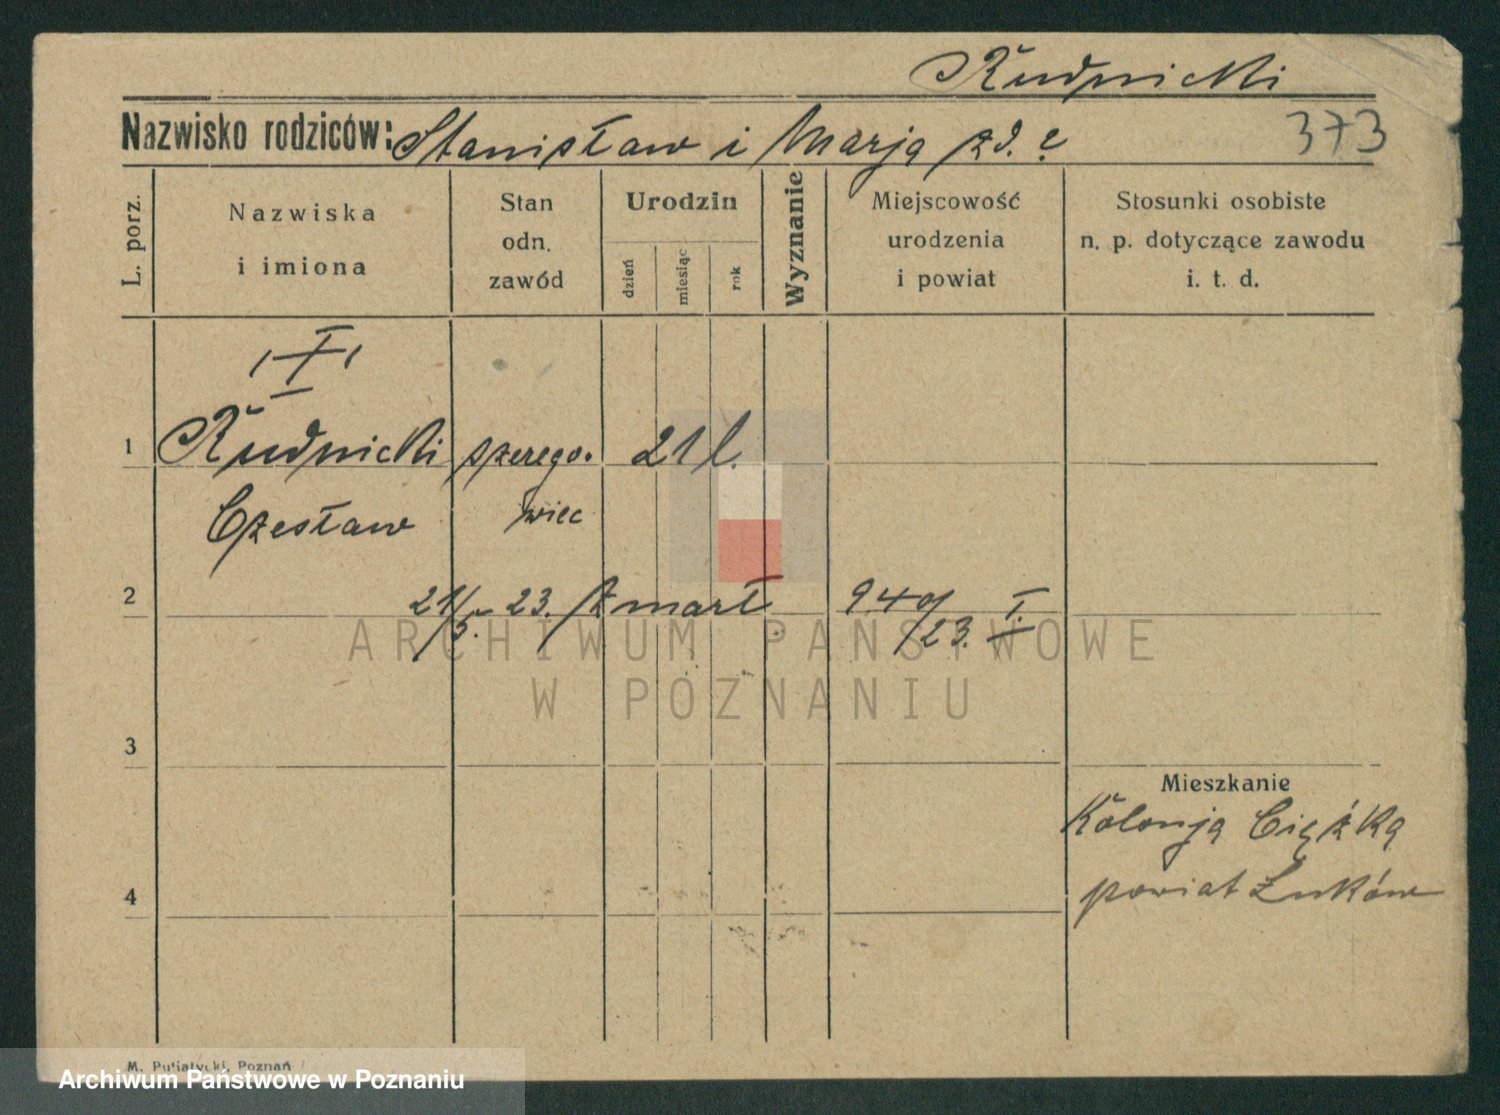 Rudnicki
Nazwisko rodziców: Stanisław i Marja zd. ?
373
L. porz.
Nazwiska
i imiona
Stan
odn.
zawód
Urodzin
dzień
miesiąc
rok
Wyznanie
Miejscowość
urodzenia
i powiat
Stosunki osobiste
n. p. dotyczące zawodu
i. t. d.
1
Rudnicki szerego. 21 l.
Czesław wiec
2
21/5. 23. zmarł 940/23. I.
ARCHIWUM PAŃSTWOWE
W POZNANIU
3
Mieszkanie
Kolonja Ciężka
4
powiat Łuków
M. Putiatycki, Poznań
Archiwum Państwowe w Poznaniu